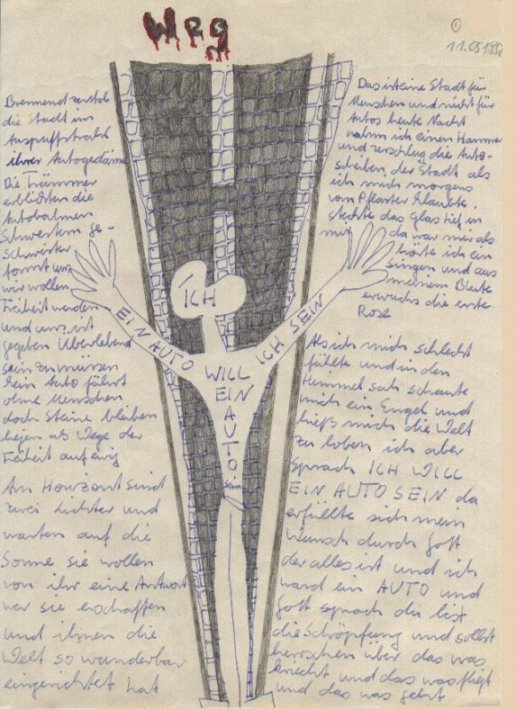 Weg
©
11.08.199
Brennend zerstob
die Stadt im
Auspuffstrahl
ihrer Autogedärme
Die Trümmer
erblickten die
Autobahnen
Schwestern Ge-
schwister
formt uns
wir wollen
Freiheit werden
und uns ist
gegeben Überlebend
sein zu müssen
kein Auto fährt
ohne Menschen
doch Steine bleiben
liegen als Wege der
Freiheit auf ewig
Am Horizont sind
zwei Lichter und
warten auf die
Sonne sie wollen
von ihr eine Antwort
wer sie erschaffen
und ihnen die
Welt so wunderbar
eingerichtet hat
ICH
EIN AUTO WILL ICH SEIN
EIN
AUTO
sein
Das ist eine Stadt für
Menschen und nicht für
Autos heute Nacht
nahm ich einen Hammer
und zerschlug die Auto-
scheiben der Stadt als
ich mich morgens
vom Pflaster klaubte
steckte das Glas tief in
mir da war mir als
hörte ich ein
singen und aus
meinem Blute
erwuchs die erste
Rose
Als ich mich schlecht
fühlte und in den
Himmel sah schaute
mich ein Engel und
hieß mich die Welt
zu loben ich aber
sprach ICH WILL
EIN AUTO SEIN da
erfüllte sich mein
Wunsch durch Gott
der alles ist und ich
ward ein AUTO und
Gott sprach du bist
die Schöpfung und sollst
herrschen über das was
kriecht und das was fliegt
und das was geht